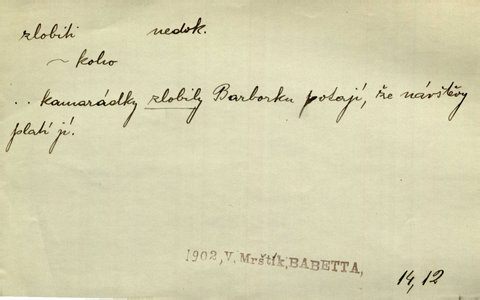 zlobiti nedok.
~ koho
.. kamarádky zlobily Barborku potají, že návštěvy
platí jí.
1902, V. Mrštík, BABETTA,
14, 12